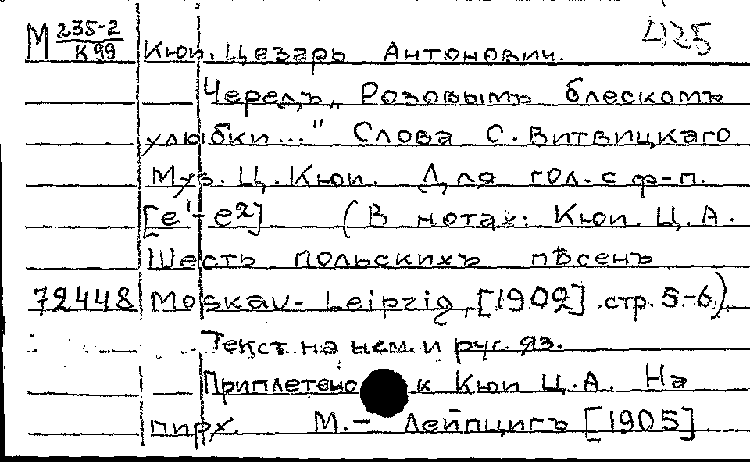 М 235-2/К99 Кюи, Цезарь Антонович. 425
Чередъ „Розовымъ блескомъ
улыбки..." Слова С. Витвицкаго
Муз. Ц. Кюи. Для гол. с ф-п.
[e¹- e²] (В нотах: Кюи. Ц. А.
Шесть польскихъ пѣсенъ
72448 Moskau- Leipzig, [1902] стр. 5-6)
Текст на нем. и рус. яз.
Приплетено к Кюи Ц. А. На
пирх. М.- Лейпцигъ [1905]